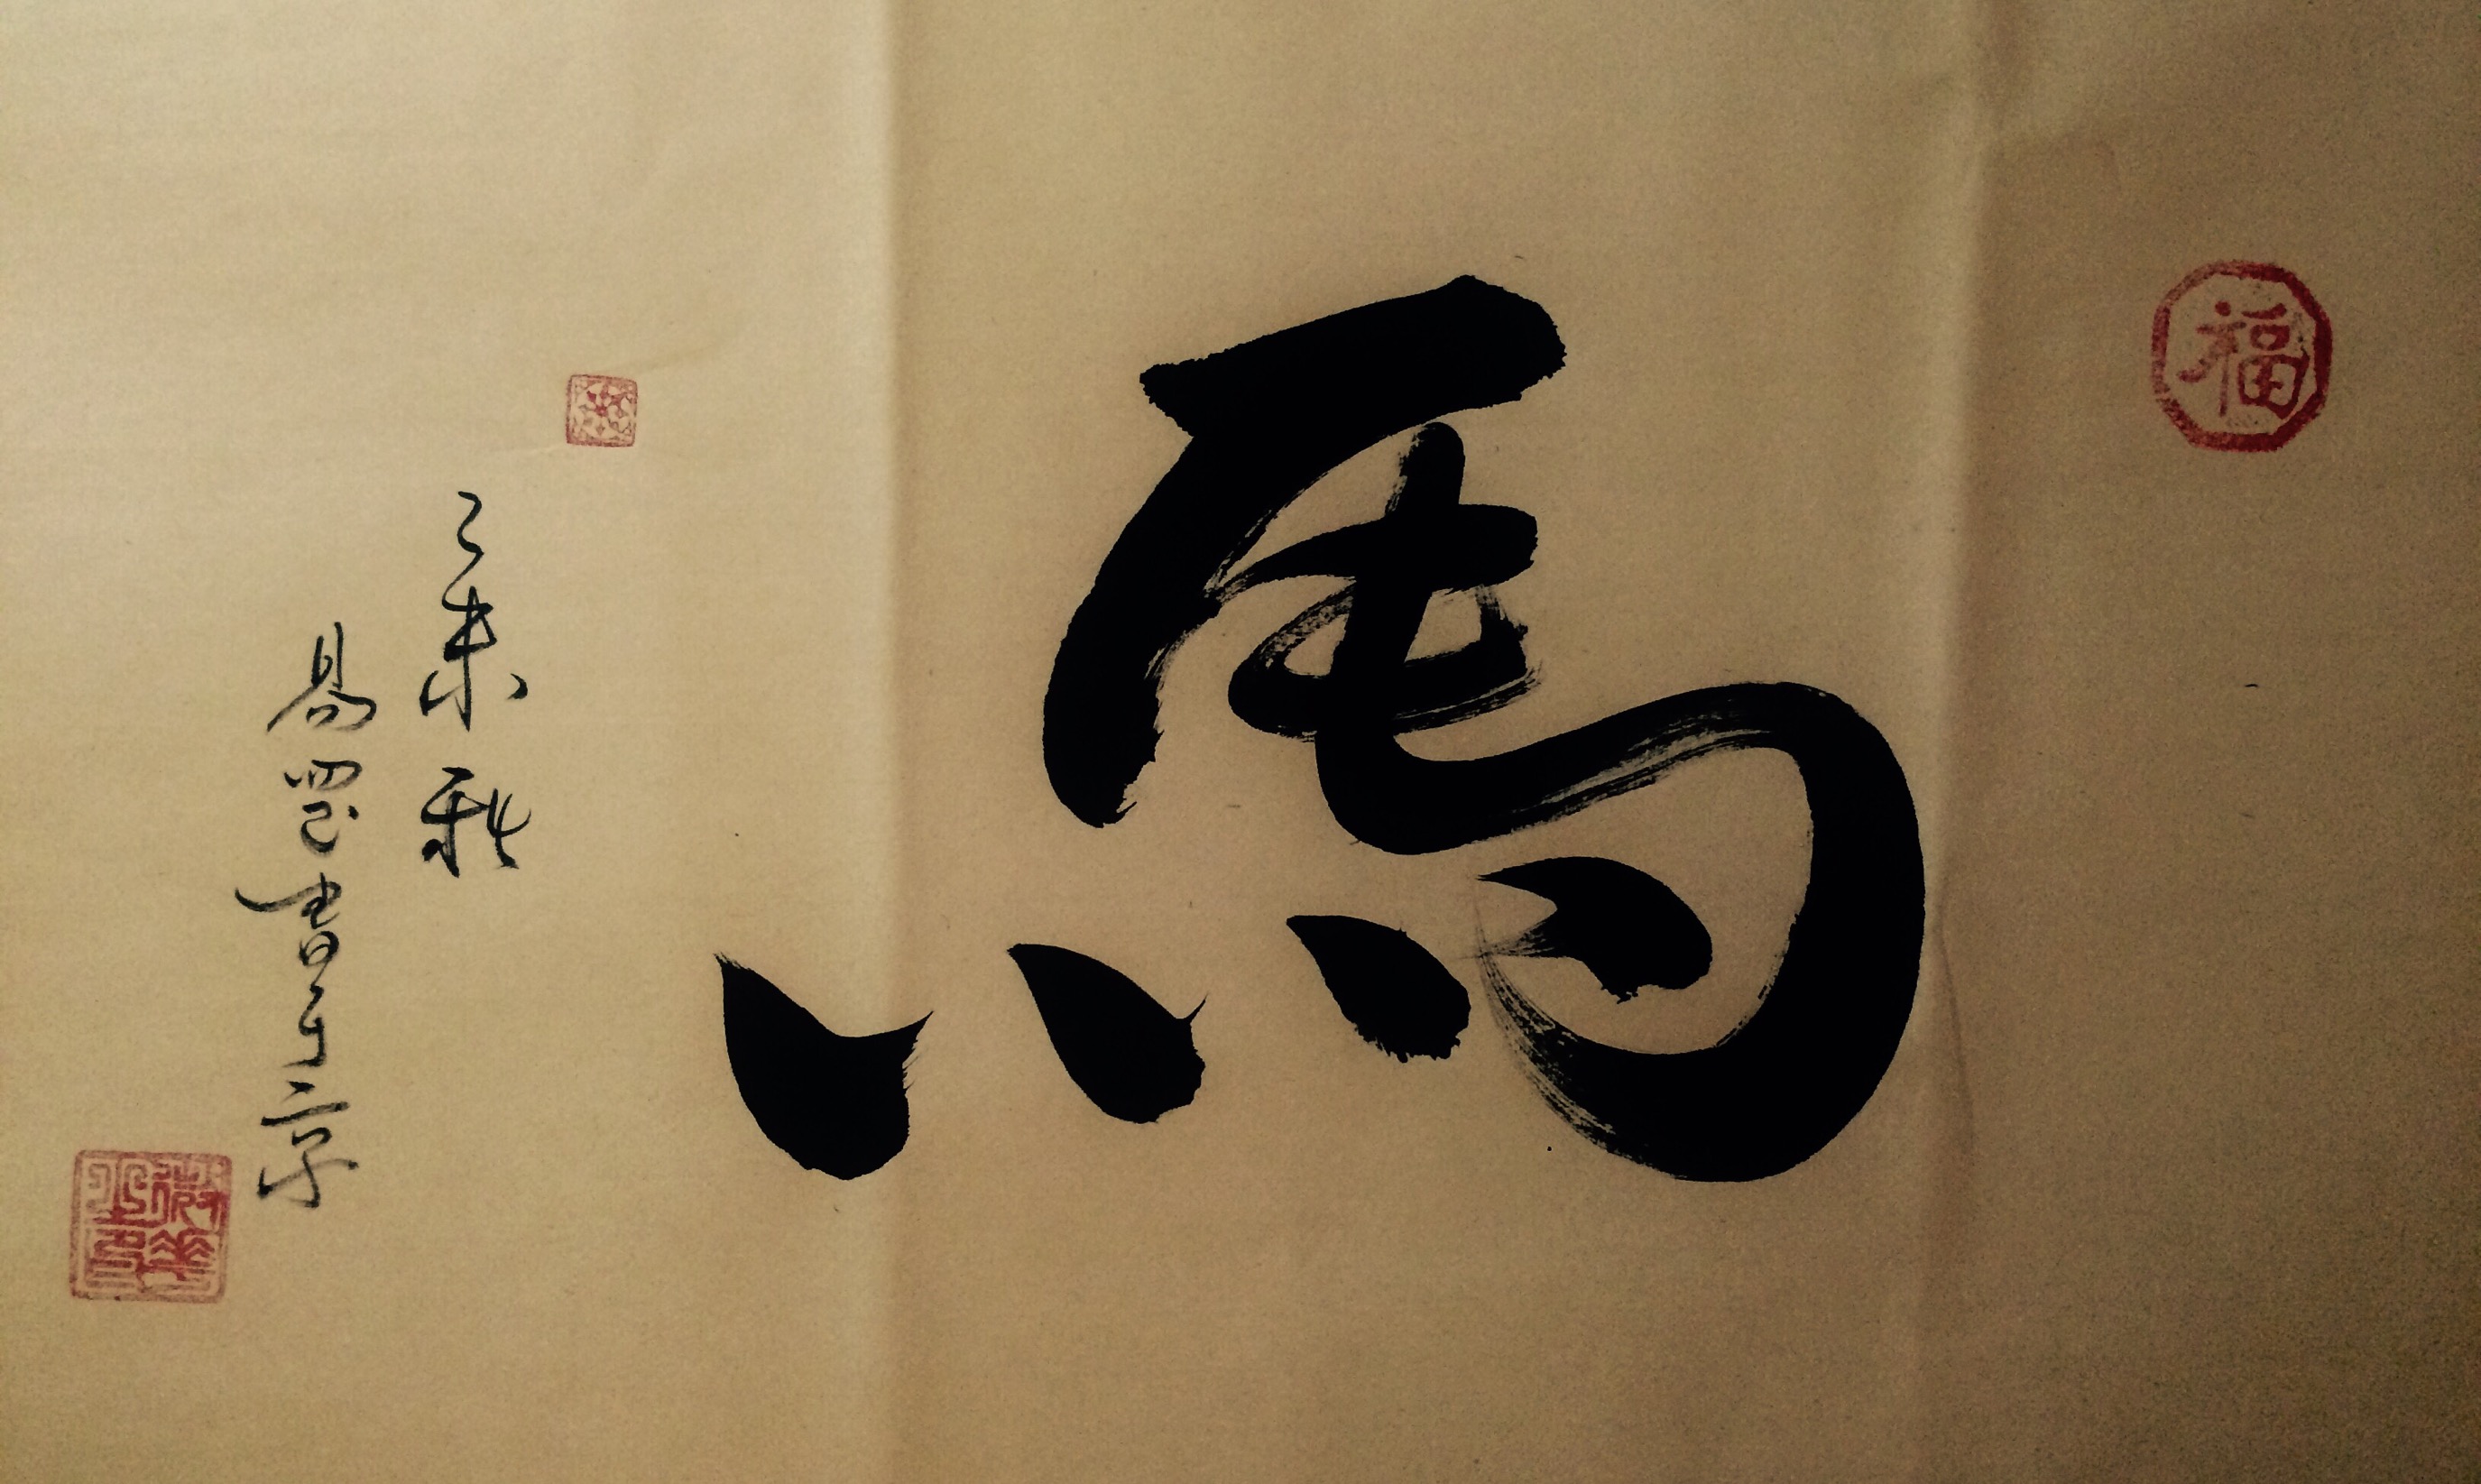 福
馬
乙未秋
易罡書于京